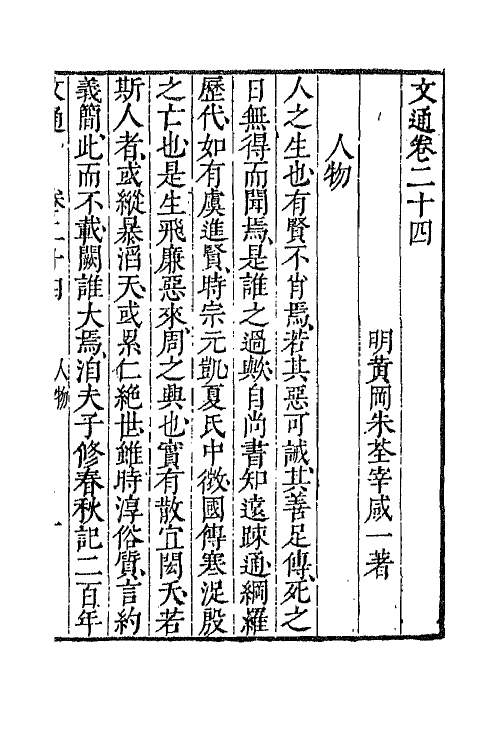 文通卷二十四
明黃岡朱荃宰咸一著
人物
人之生也有賢不肖焉若其惡可誡其善足傳死之
日無得而聞焉是誰之過歟自尚書知遠踈通綱羅
歷代如有虞進賢時宗元凱夏氏中微國傳寒浞殷
之亡也是生飛廉惡來周之興也實有散宜閎夭若
斯人者或縱暴滔天或累仁絕世雖時淳俗質言約
義簡此而不載闕誰大焉洎夫子修春秋記二百年
文通 卷二十四 人物 一